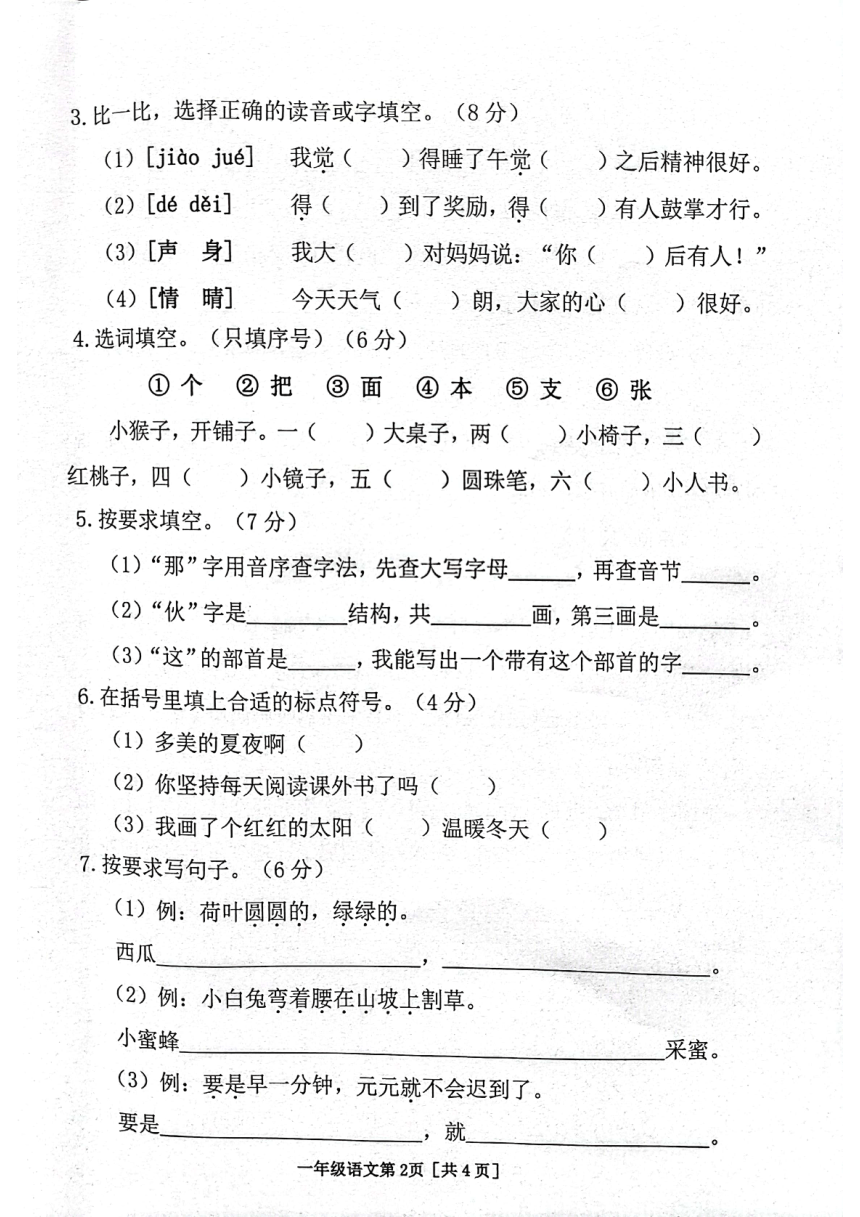 3.比一比，选择正确的读音或字填空。（8分）
(1)[jiào jué] 我觉（ ）得睡了午觉（ ）之后精神很好。
(2)[dé děi] 得（ ）到了奖励，得（ ）有人鼓掌才行。
(3)[声 身] 我大（ ）对妈妈说：“你（ ）后有人！”
(4)[情 晴] 今天天气（ ）朗，大家的心（ ）很好。
4.选词填空。（只填序号）（6分）
①个 ②把 ③面 ④本 ⑤支 ⑥张
小猴子，开铺子。一（ ）大桌子，两（ ）小椅子，三（ ）
红桃子，四（ ）小镜子，五（ ）圆珠笔，六（ ）小人书。
5.按要求填空。（7分）
(1)“那”字用音序查字法，先查大写字母______，再查音节______。
(2)“伙”字是________结构，共________画，第三画是_______。
(3)“这”的部首是______，我能写出一个带有这个部首的字______。
6.在括号里填上合适的标点符号。（4分）
(1)多美的夏夜啊（ ）
(2)你坚持每天阅读课外书了吗（ ）
(3)我画了个红红的太阳（ ）温暖冬天（ ）
7.按要求写句子。（6分）
(1)例：荷叶圆圆的，绿绿的。
西瓜____________________，____________________。
(2)例：小白兔弯着腰在山坡上割草。
小蜜蜂________________________________________采蜜。
(3)例：要是早一分钟，元元就不会迟到了。
要是____________________，就____________________。
一年级语文第2页[共4页]